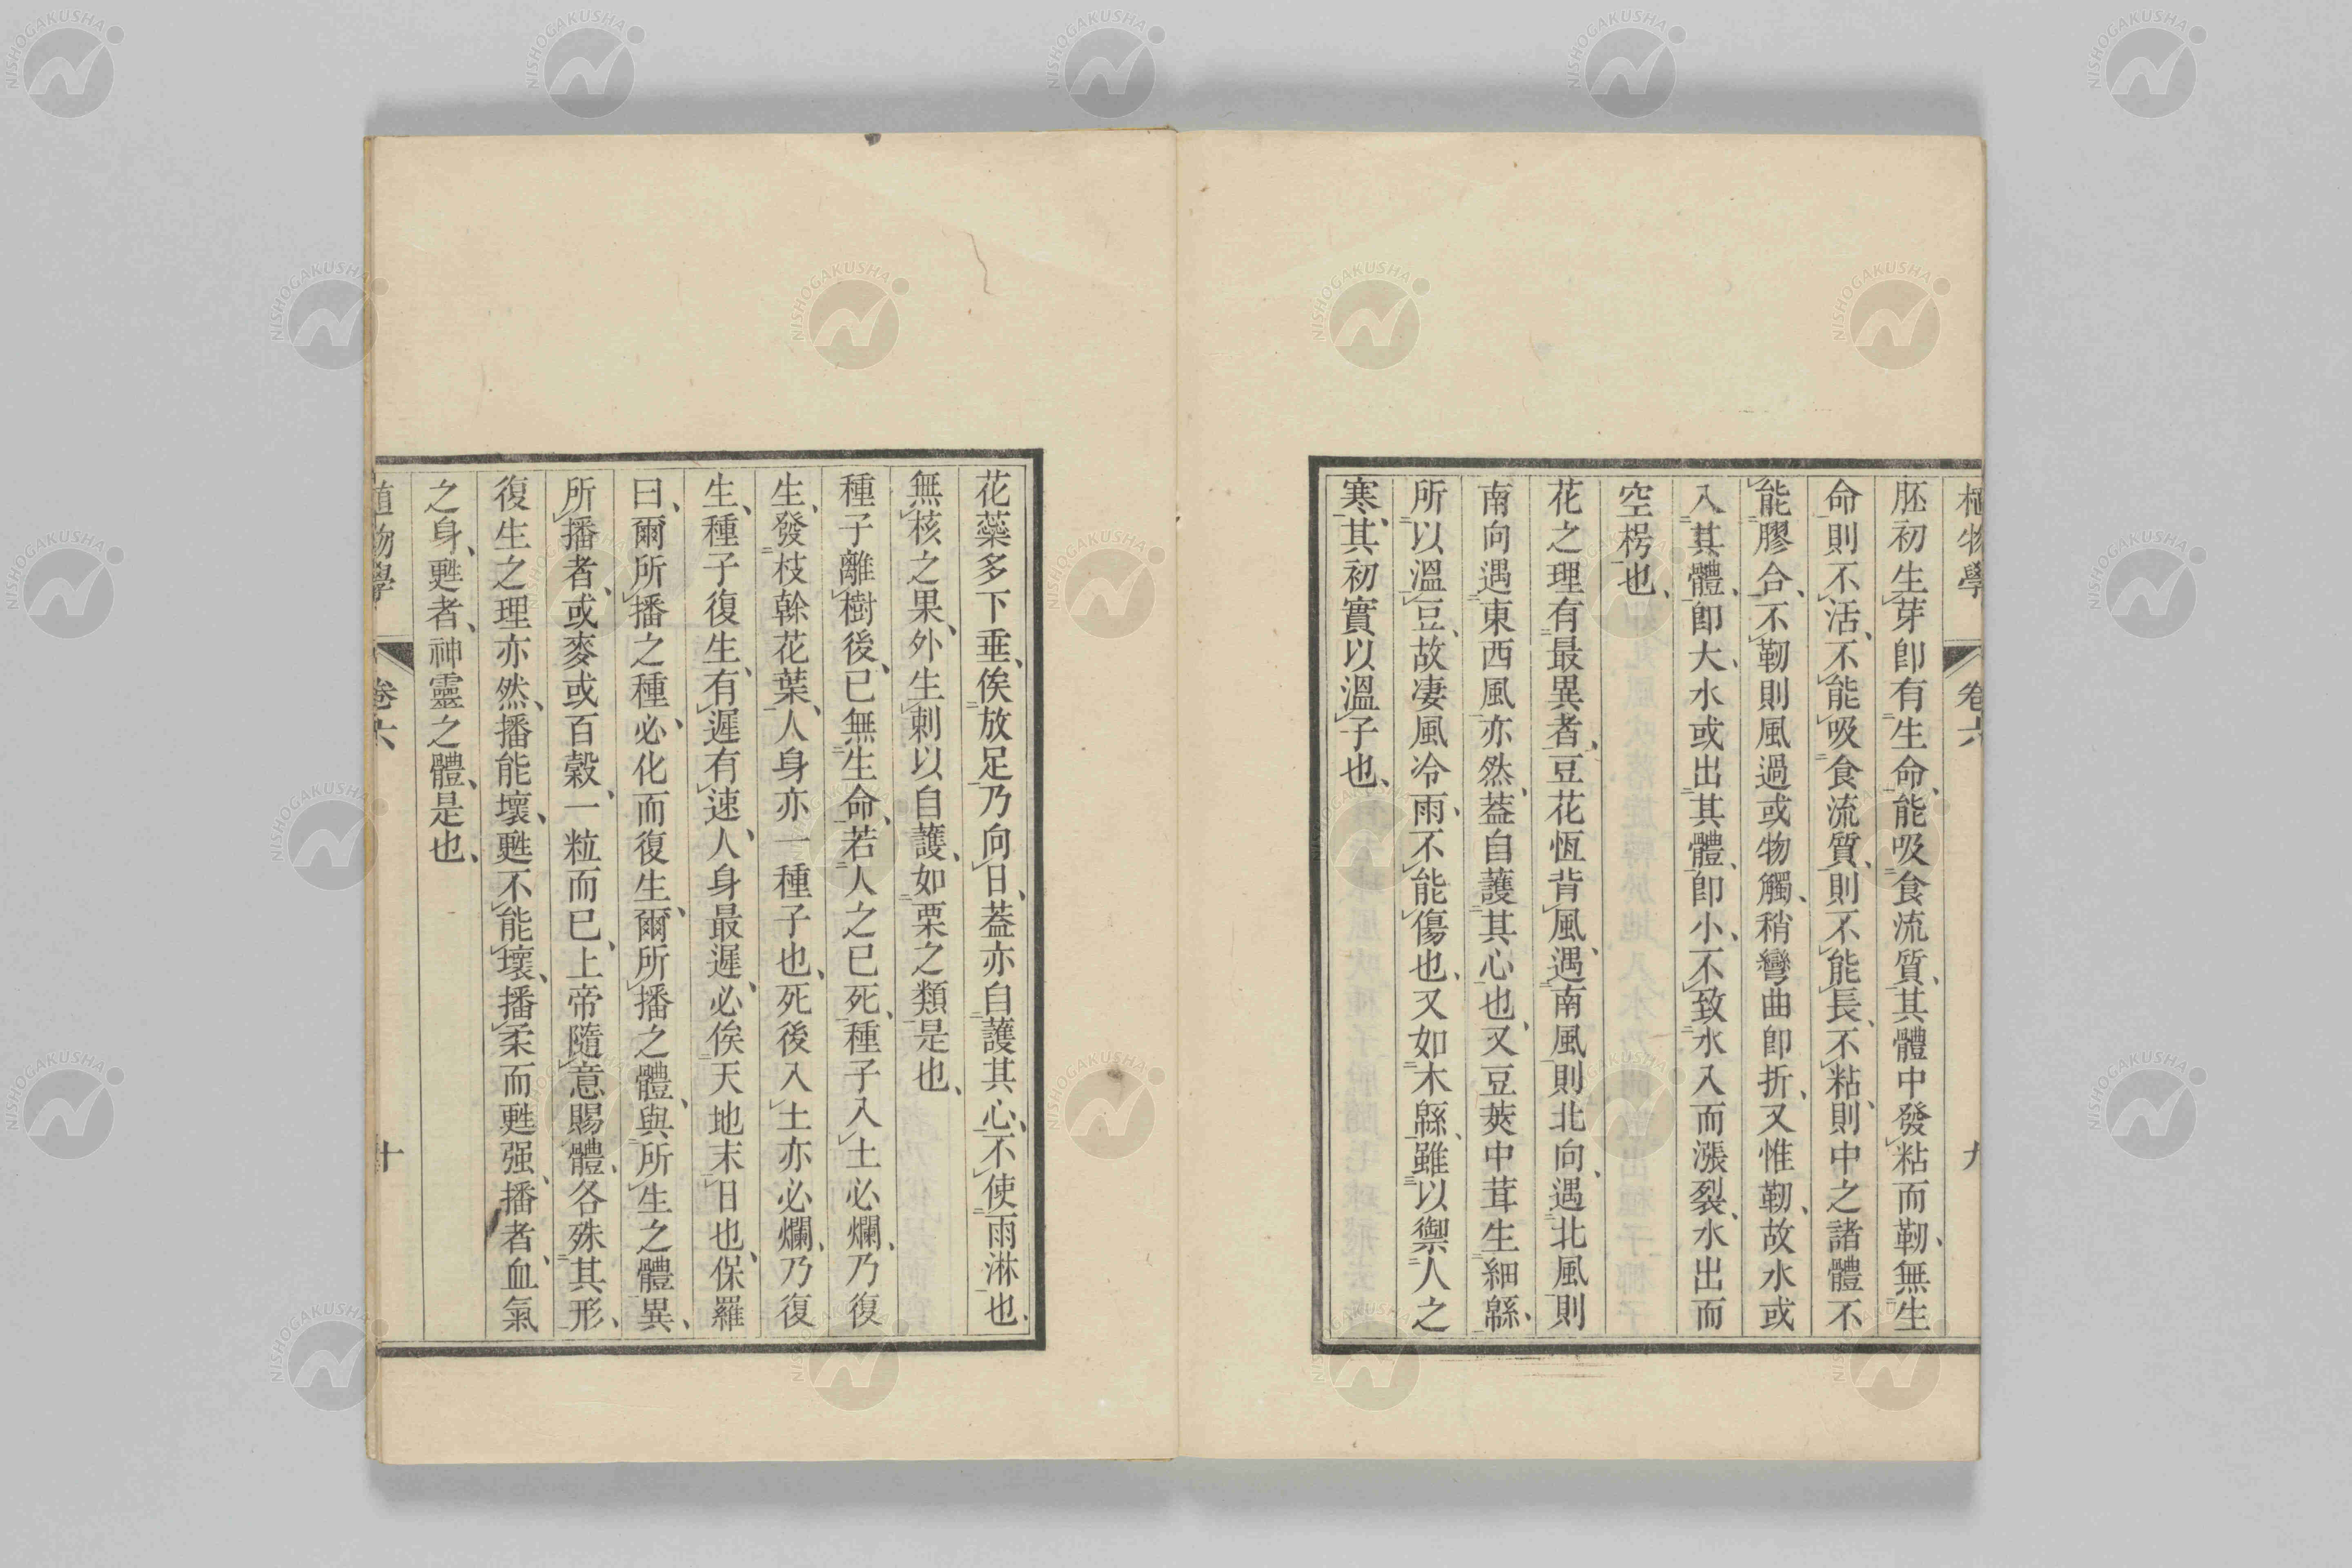 植物學 卷六 九
胚初生芽卽有生命、能吸食流質、其體中發粘而韌、無生
命則不活、不能吸食流質、則不能長、不粘、則中之諸體不
能膠合、不韌則風過或物觸、稍彎曲卽折、又惟韌、故水或
入其體、卽大、水或出其體、卽小、不致水入而漲裂、水出而
空楞也、
花之理有最異者、豆花恆背風、遇南風則北向、遇北風則
南向遇東西風亦然、葢自護其心也、又豆莢中茸生細緜、
所以溫豆、故凄風冷雨、不能傷也、又如木緜、雖以禦人之
寒、其初實以溫子也、
花蘂多下垂、俟放足乃向日、葢亦自護其心、不使雨淋也、
無核之果、外生刺以自護、如栗之類是也、
種子離樹後、已無生命、若人之已死、種子入土必爛、乃復
生、發枝榦花葉、人身亦一種子也、死後入土亦必爛、乃復
生、種子復生、有遲有速、人身最遲、必俟天地末日也、保羅
曰、爾所播之種、必化而復生、爾所播之體、與所生之體異、
所播者、或麥或百穀、一粒而已、上帝隨意賜體、各殊其形、
復生之理亦然、播能壞、甦不能壞、播柔而甦强、播者、血氣
之身、甦者、神靈之體、是也、
植物學 卷六 十
NISHOGAKUSHA